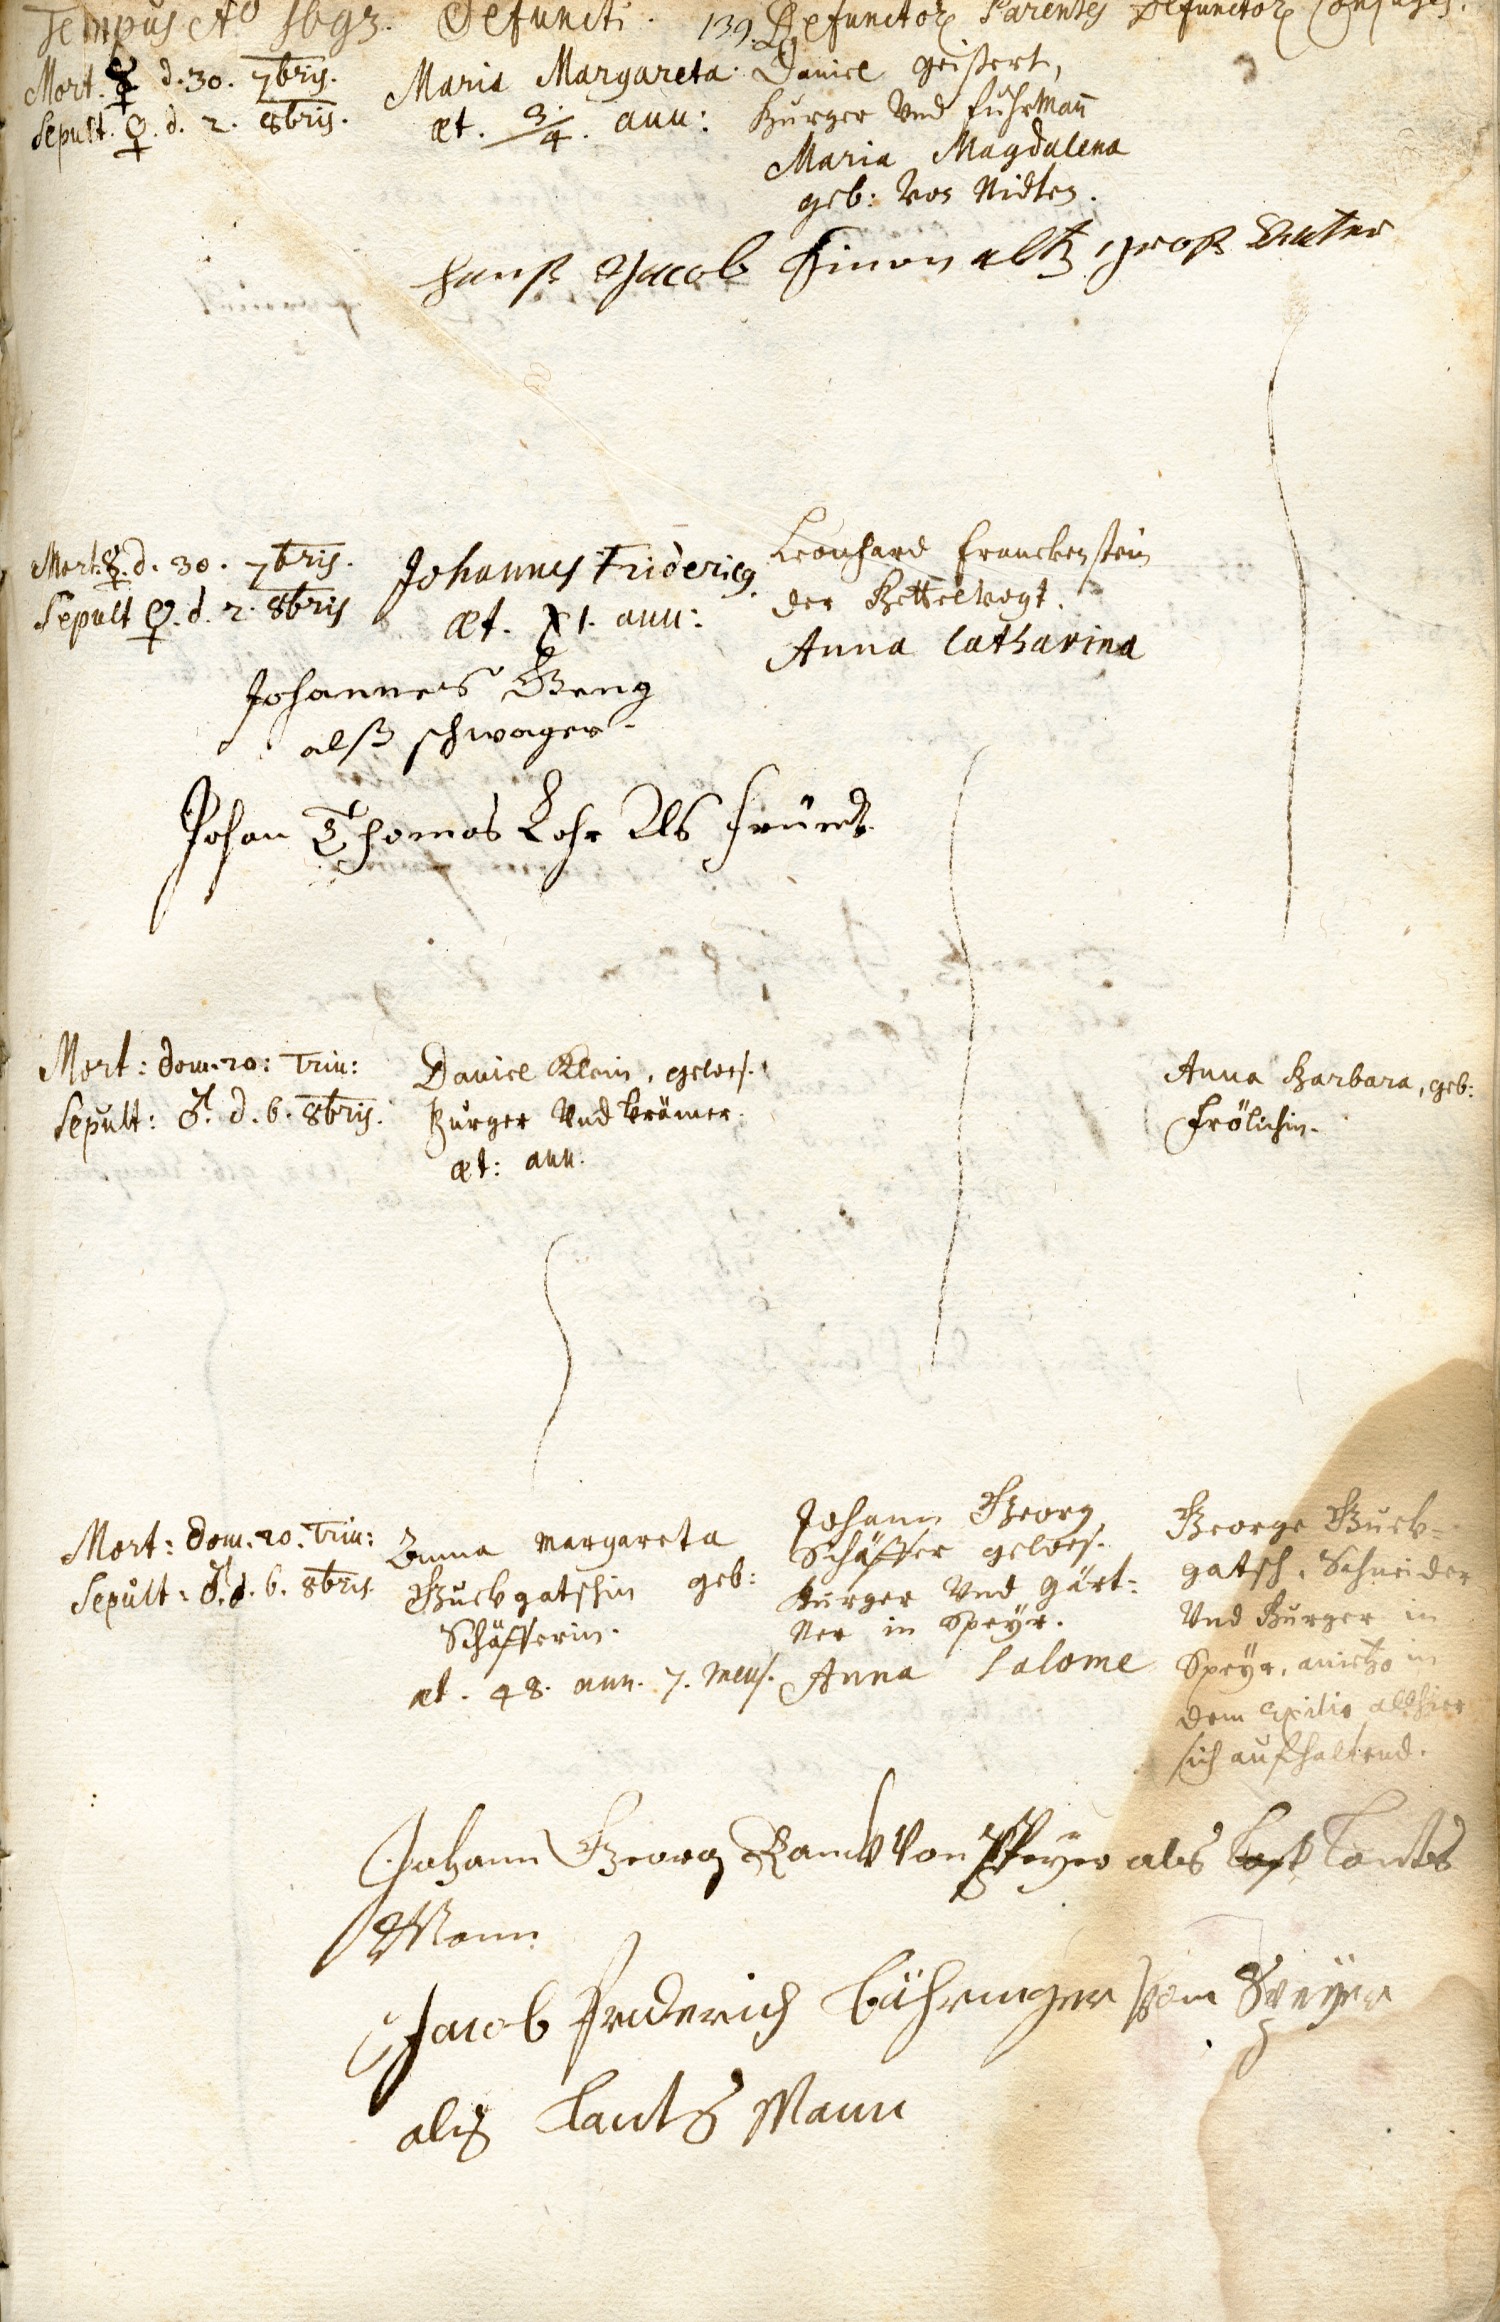 Tempus Aō 1693. Defuncti. 139. Defunctor. Parentes Defunctor. Conjuges.
Mort. ☿ d. 30. 7bris.
Sepult. ♀. d. 2. 8bris.
Maria Margareta
æt. 3/4. ann:
Daniel Geistert,
Burger Vnd fuhrmañ
Maria Magdalena
geb: Von Nidten.
Hanß Jacob Simon alß groß Vatter
Mort. ☿. d. 30. 7bris.
Sepult ♀. d. 2. 8bris
Johannes Frideric9.
æt. XI. ann:
Leonhard Franckenstein
der Bettelvogt.
Anna Catharina
Johannes Beng
alß schwager
Johan Thomas Lohr Als freündt
Mort: dom. 20: Trin:
Sepult: ♂. d. 6. 8bris.
Daniel Klein, gewes.
Burger Vnd Krämer.
æt: ann.
Anna Barbara, geb:
Frölichin.
Mort: dom. 20. Trin:
Sepult: ♂. d. 6. 8bris
Anna Margareta
Guckgatshin geb:
Schäfferin.
æt. 48. ann. 7. mens.
Johann Georg
Schäffer gewes.
Burger Vnd Gärt:
Ner in Speyr.
Anna Salome
George Guck-
gatsh, Schneider
Vnd Burger in
Speyr, anietzo in
dem Exilio allhier
sich aufhaltend.
Johann Georg Von Speyer als Lants
Mann
Jacob Friderich Bühringer Von Speyer
alß Lants Mann